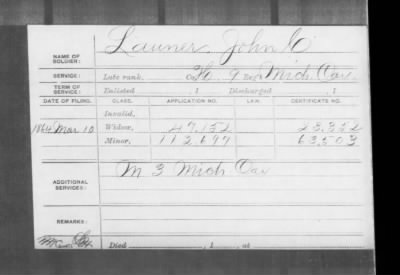 NAME OF SOLDIER: Launer, John C
SERVICE: Late rank, Co. H, 9 Reg't Mich Cav.
TERM OF SERVICE: Enlisted , 1 Discharged , 1
DATE OF FILING. CLASS. APPLICATION NO. LAW. CERTIFICATE NO.
Invalid,
1864 Mar 10 Widow, 47,152 23,352
Minor, 112,697 63,503
ADDITIONAL SERVICES: M 3 Mich Cav
REMARKS:
Died , 1 , at